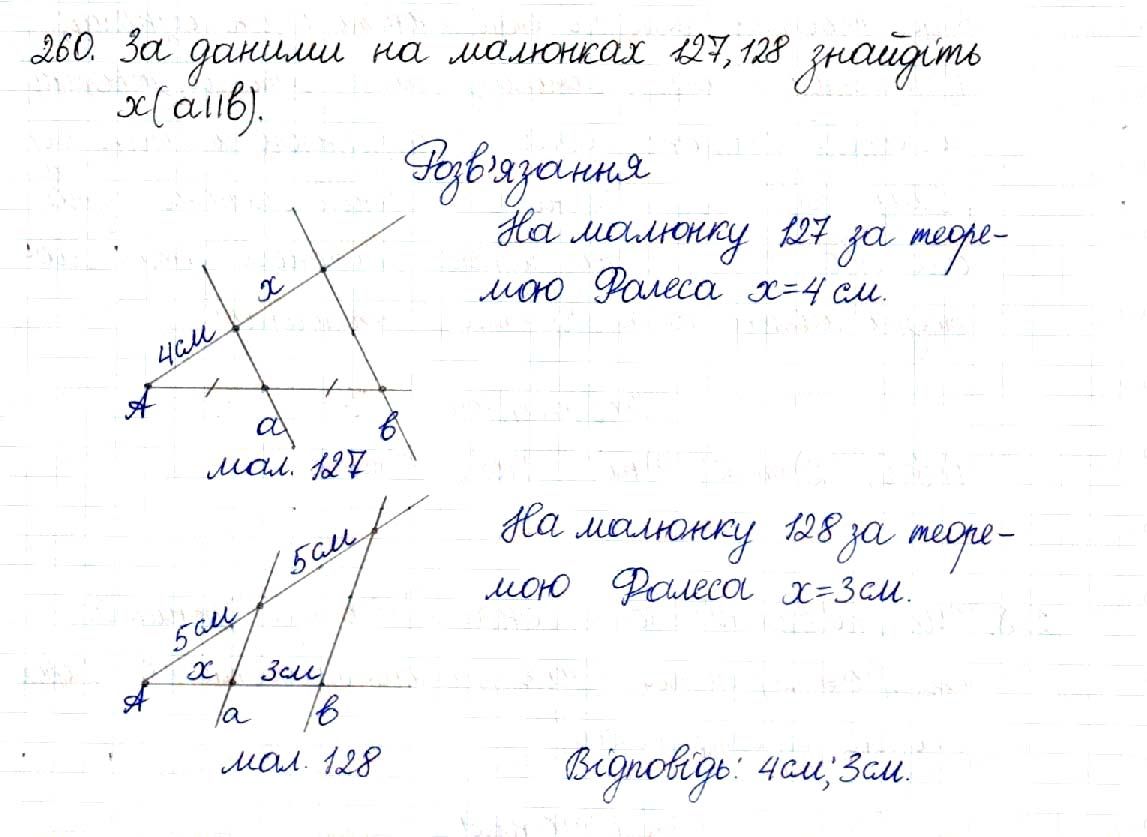 260. За даними на малюнках 127, 128 знайдіть
x(a||b).
Розв'язання
На малюнку 127 за теоре-
мою Фалеса x=4 см.
x
4см
A
a
b
мал. 127
На малюнку 128 за теоре-
мою Фалеса x=3см.
5см
5см
x
3см
A
a
b
мал. 128
Відповідь: 4см; 3см.